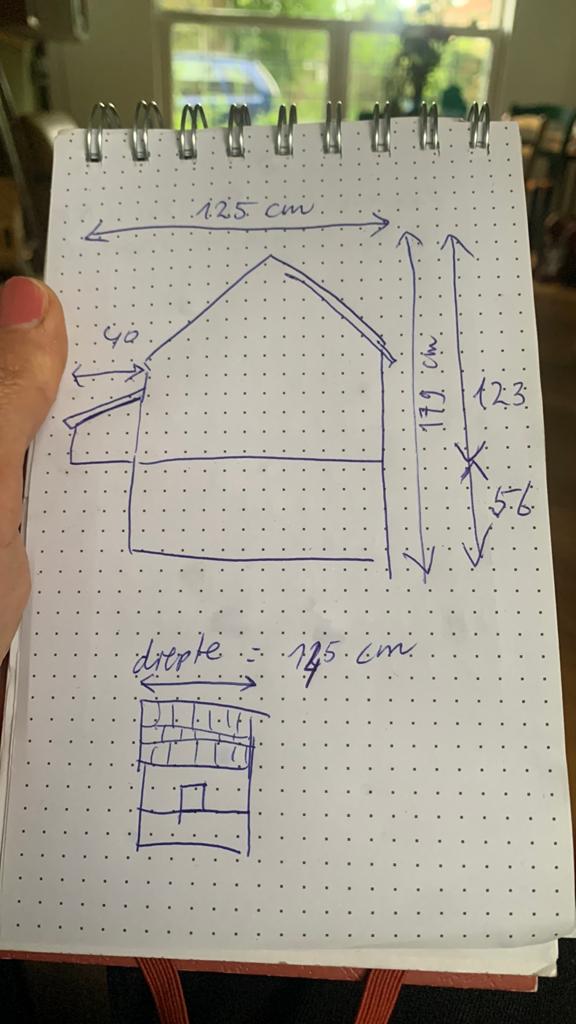 125 cm
40
179 cm
123
56
diepte = 145 cm